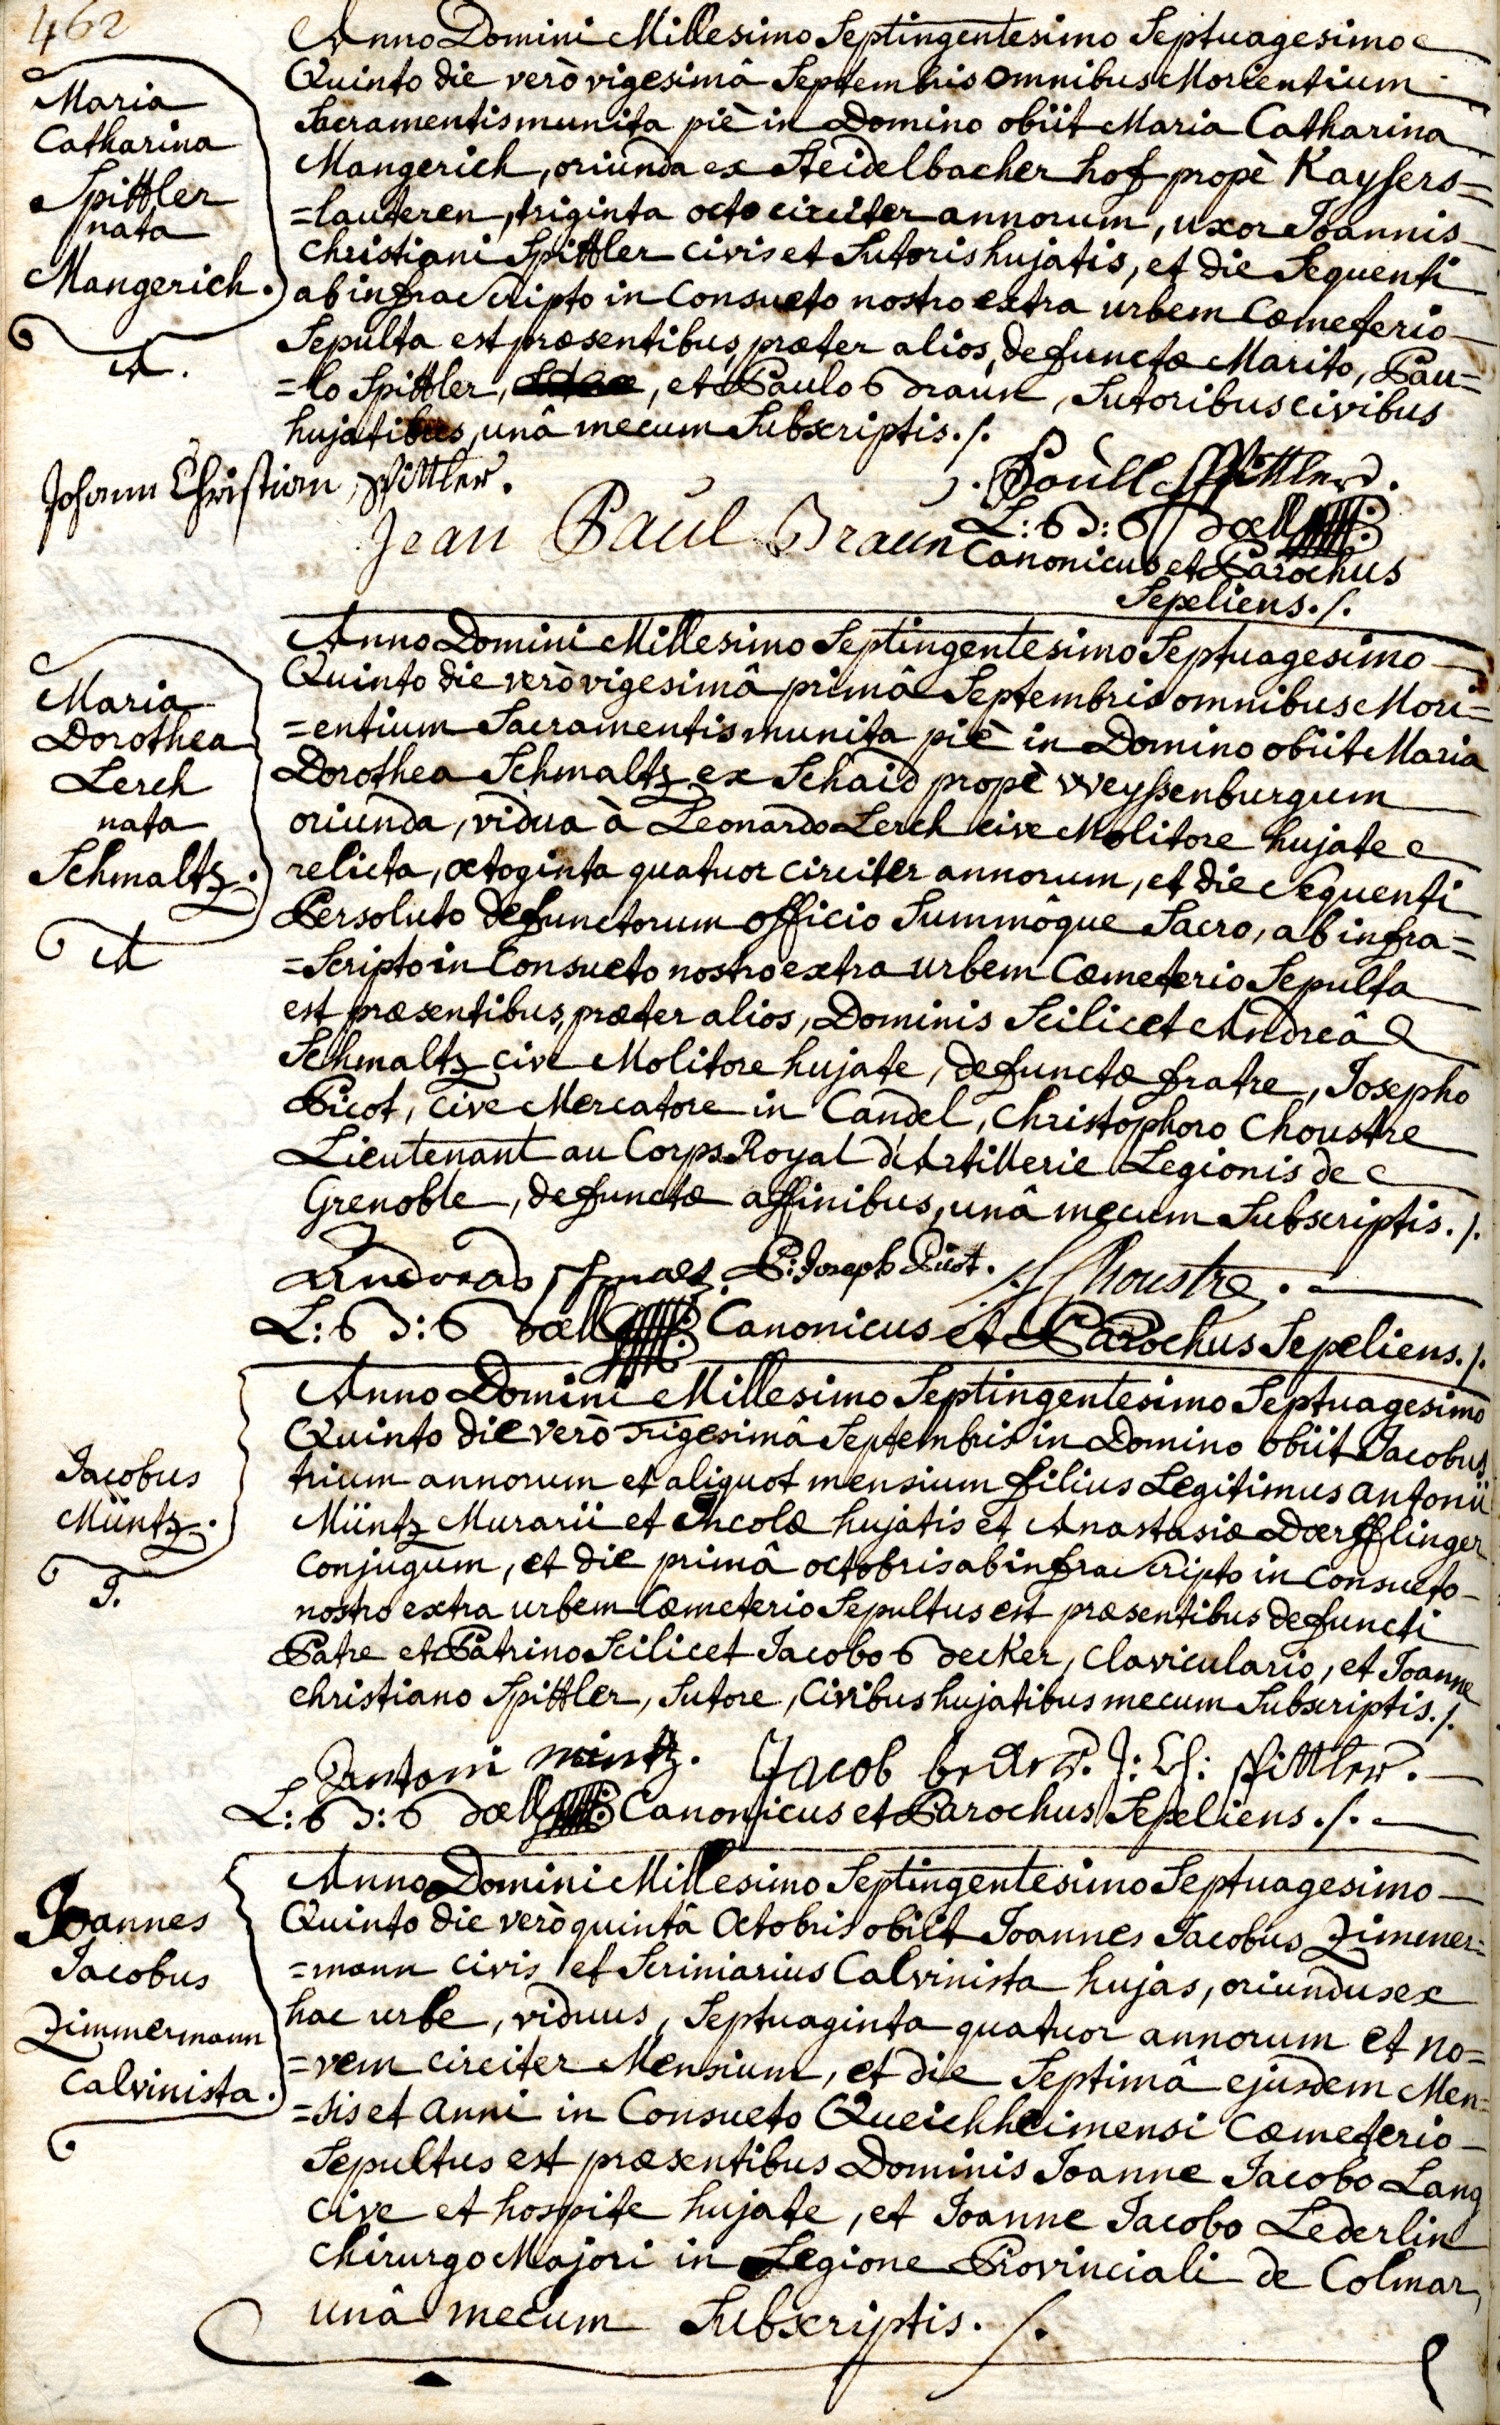 462
Maria
Catharina
Spittler
nata
Mangerich.
A.
Anno Domini Millesimo Septingentesimo Septuagesimo
Quinto die verò vigesimâ Septembris omnibus Morientium
Sacramentis munita piè in Domino obiit Maria Catharina
Mangerich, oriunda ex Heidelbacher hof propè Kaysers=
=lauteren, triginta octo circiter annorum, uxor Joannis
Christiani Spittler civis et Sutoris hujatis, et die Sequenti
ab infra Scripto in Consueto nostro extra urbem Cœmeterio
Sepulta est præsentibus, præter alios, defunctæ Marito, Pau=
=lo Spittler, et Paulo Braun, Sutoribus civibus
hujatibus, unâ mecum Subscriptis ./.
Johann Christian Spittler.
J. Poull Spittler.
Jean Paul Braun
L: B: B
Canonicus et Parochus
Sepeliens ./.
Maria
Dorothea
Lerch
nata
Schmaltz.
A
Anno Domini Millesimo Septingentesimo Septuagesimo
Quinto die verò vigesimâ primâ Septembris omnibus Mori=
=entium Sacramentis munita piè in Domino obiit Maria
Dorothea Schmaltz ex Schaid propè Weyssenburgum
oriunda, vidua à Leonardo Lerch cive Molitore hujate
relicta, octoginta quatuor circiter annorum, et die Sequenti
Persoluto defunctorum officio Summôque Sacro, ab infra=
=Scripto in Consueto nostro extra urbem Cœmeterio Sepulta
est præsentibus, præter alios, Dominis Scilicet Andreâ
Schmaltz cive Molitore hujate, defunctæ fratre, Josepho
Picot, cive Mercatore in Candel, Christophoro Choustre
Lieutenant au Corps Royal d'Artillerie Legionis de
Grenoble, defunctæ affinibus, unâ mecum Subscriptis ./.
Andreas Schmalz. P: Joseph Picot. Choustre.
L: B: B Canonicus et Parochus Sepeliens ./.
Jacobus
Müntz.
J.
Anno Domini Millesimo Septingentesimo Septuagesimo
Quinto die verò Trigesimâ Septembris in Domino obiit Jacobus
trium annorum et aliquot mensium filius Legitimus antonii
Müntz Murarii et Incolæ hujatis et Anastasiæ Dœrfflinger
conjugum, et die primâ octobris ab infra Scripto in Consueto
nostro extra urbem Cœmeterio Sepultus est præsentibus defuncti
Patre et Patrino Scilicet Jacobo Becker, claviculario, et Joanne
christiano Spittler, Sutore, Civibus hujatibus mecum Subscriptis ./.
antoni mintz. Jacob becker. J: Ch: Spittler.
L: B: B Canonicus et Parochus Sepeliens ./.
Joannes
Jacobus
Zimmermann
Calvinista.
Anno Domini Millesimo Septingentesimo Septuagesimo
Quinto die verò quintâ Octobris obiit Joannes Jacobus Zimmer=
=mann civis et Scriniarius Calvinista hujas, oriundus ex
hac urbe, viduus, Septuaginta quatuor annorum et no=
=vem circiter Mensium, et die Septimâ ejusdem Men=
=sis et anni in Consueto Queichheimensi Cœmeterio
Sepultus est præsentibus Dominis Joanne Jacobo Lang
cive et hospite hujate, et Joanne Jacobo Lederlin
chirurgo Majori in Legione Provinciali de Colmar,
unâ mecum Subscriptis ./.